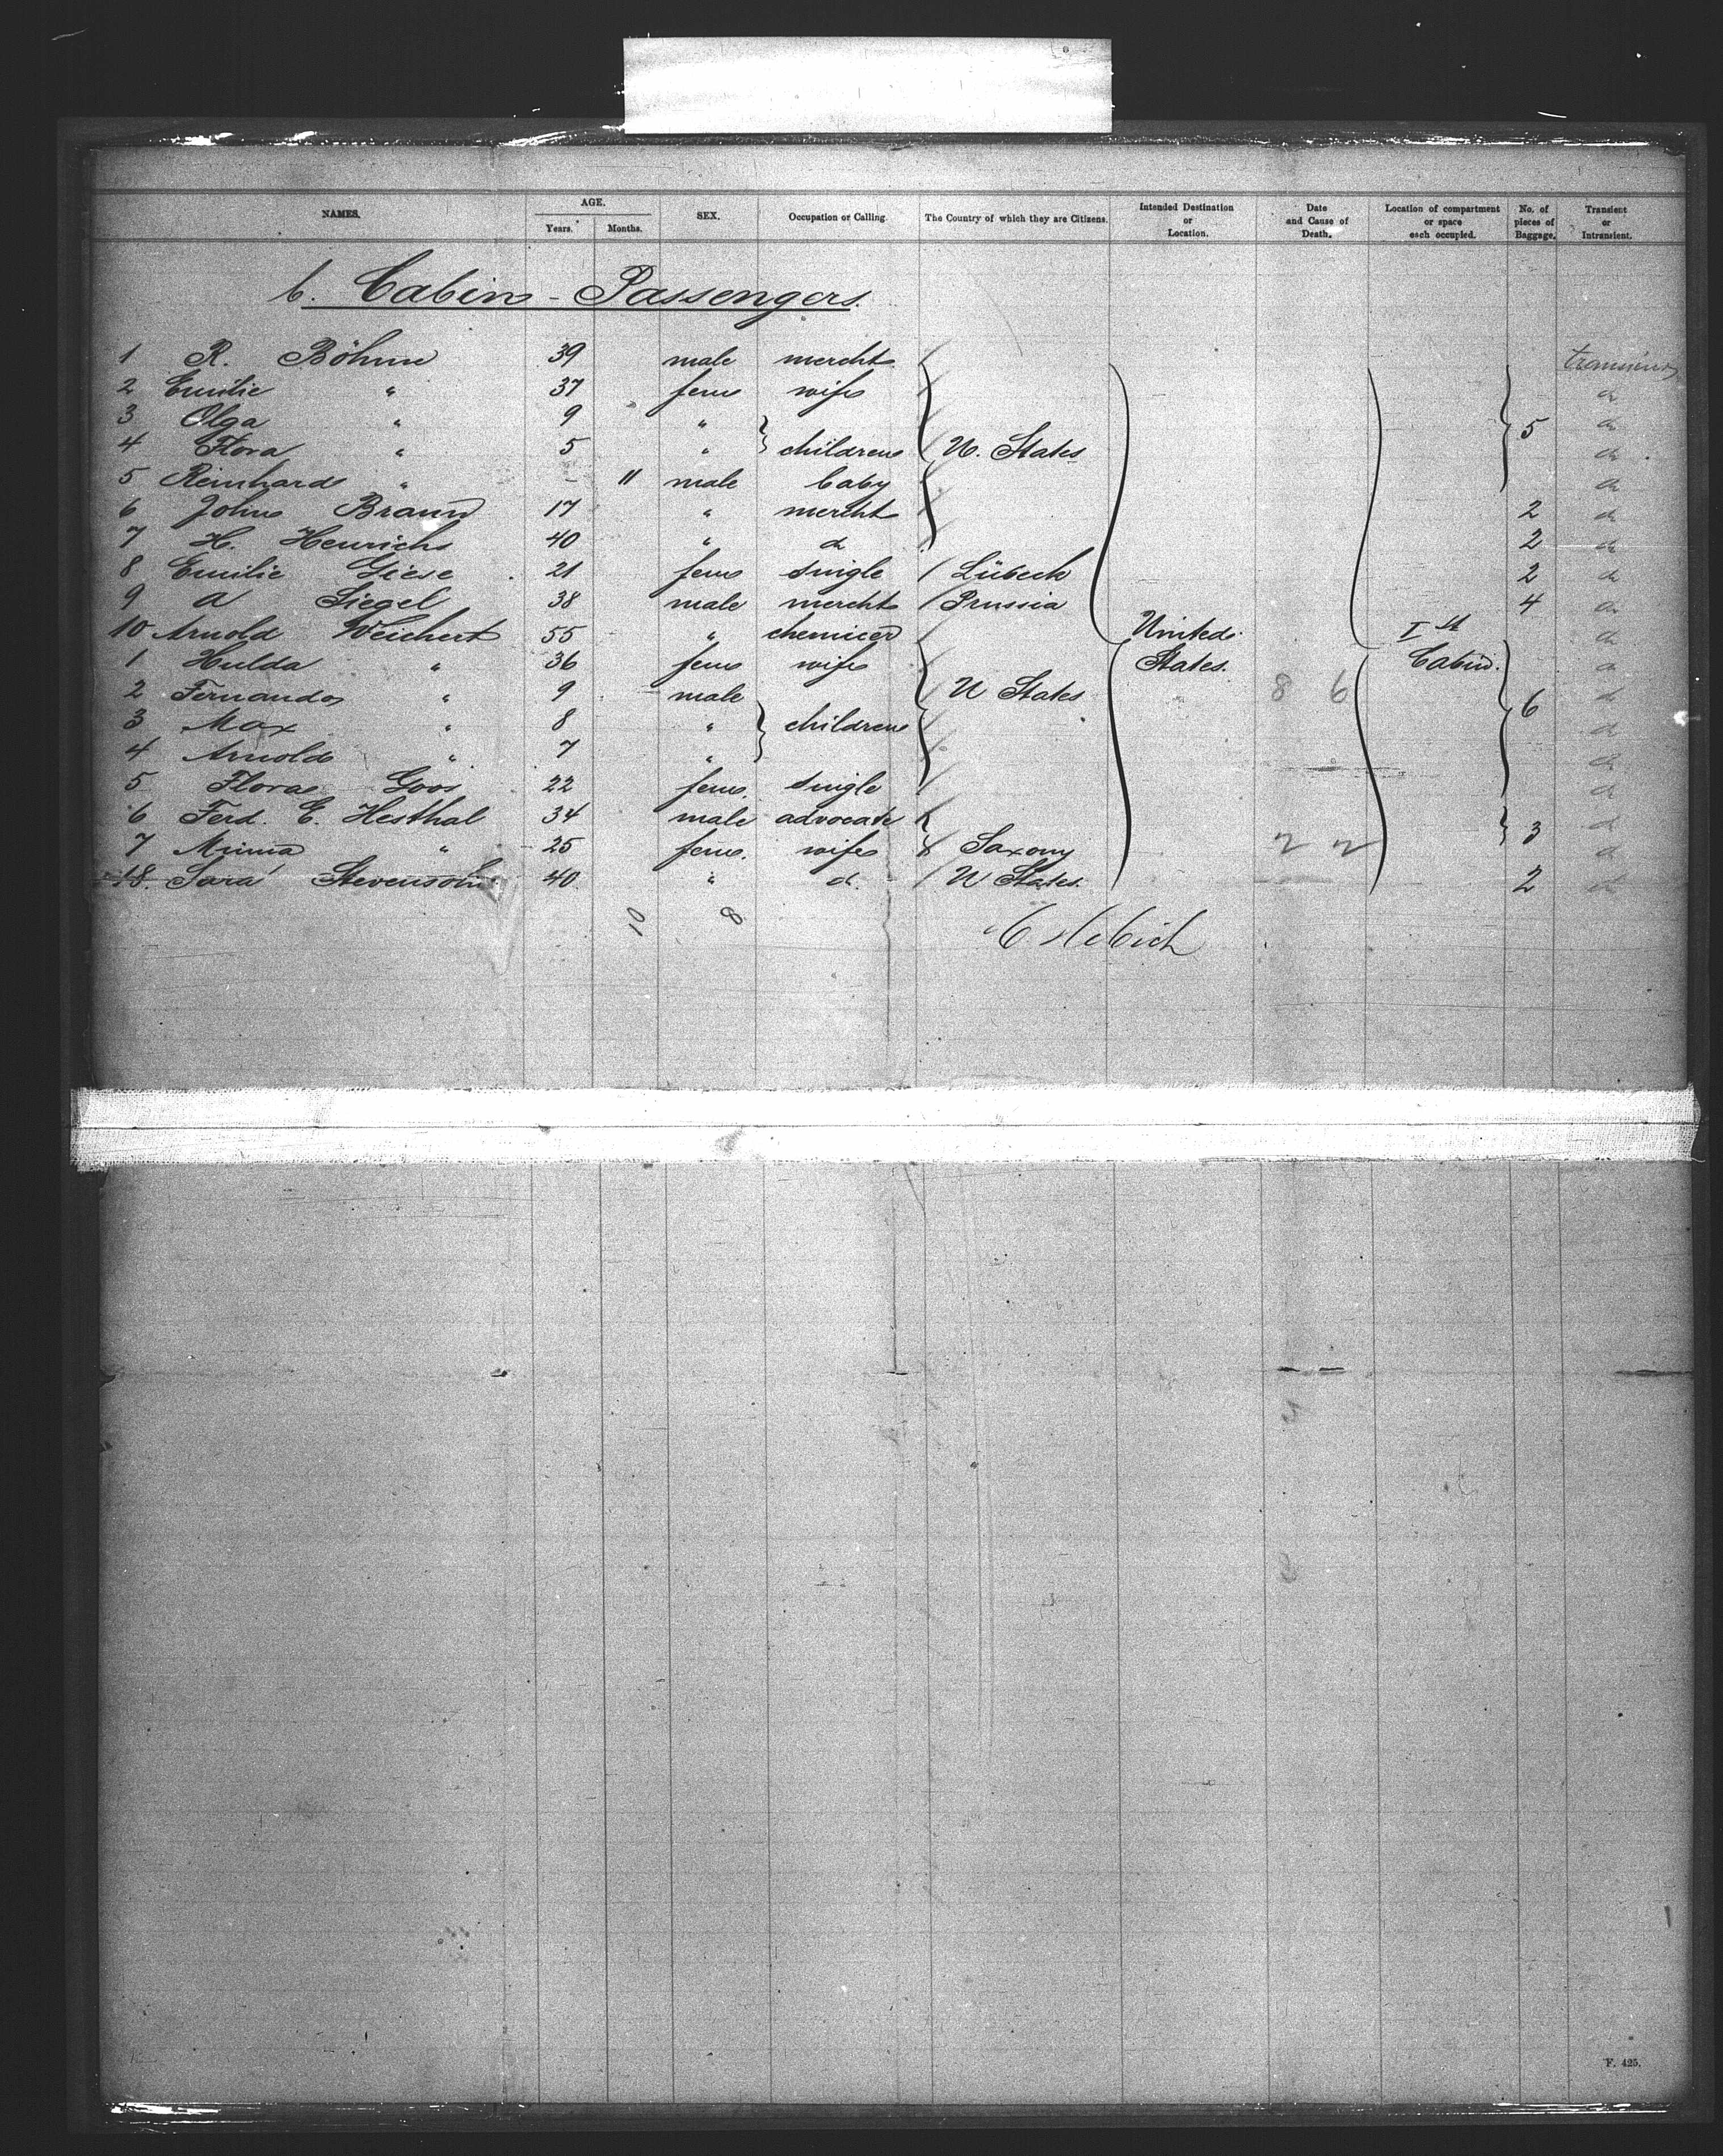 NAMES. AGE. Years. Months. SEX. Occupation or Calling. The Country of which they are Citizens. Intended Destination or Location. Date and Cause of Death. Location of compartment or space each occupied. No. of pieces of Baggage. Transient or Intransient.
b. Cabin - Passengers.
1 R. Böhme 39 male mercht transient
2 Emilie " 37 fem wife do
3 Olga " 9 " do
4 Flora " 5 " children U. States 5 do
5 Reinhard " - 11 male baby do
6 John Braun 17 " mercht 2 do
7 H. Henrichs 40 " do 2 do
8 Emilie Giese 21 fem single Lübeck 2 do
9 A Siegel 38 male mercht Prussia 4 do
10 Arnold Weichert 55 " chemicer United Ist do
1 Hulda " 36 fem wife States. Cabin. do
2 Fernando " 9 male U States 8 6 6 do
3 Max " 8 " children do
4 Arnold " 7 " do
5 Flora Goos 22 fem. single do
6 Ferd. E. Hesthal 34 male advocate do
7 Minna " 25 fem. wife Saxony 2 2 3 do
18. Sara Stevensohn 40 " d. U States. 2 do
10 8
F. 425.